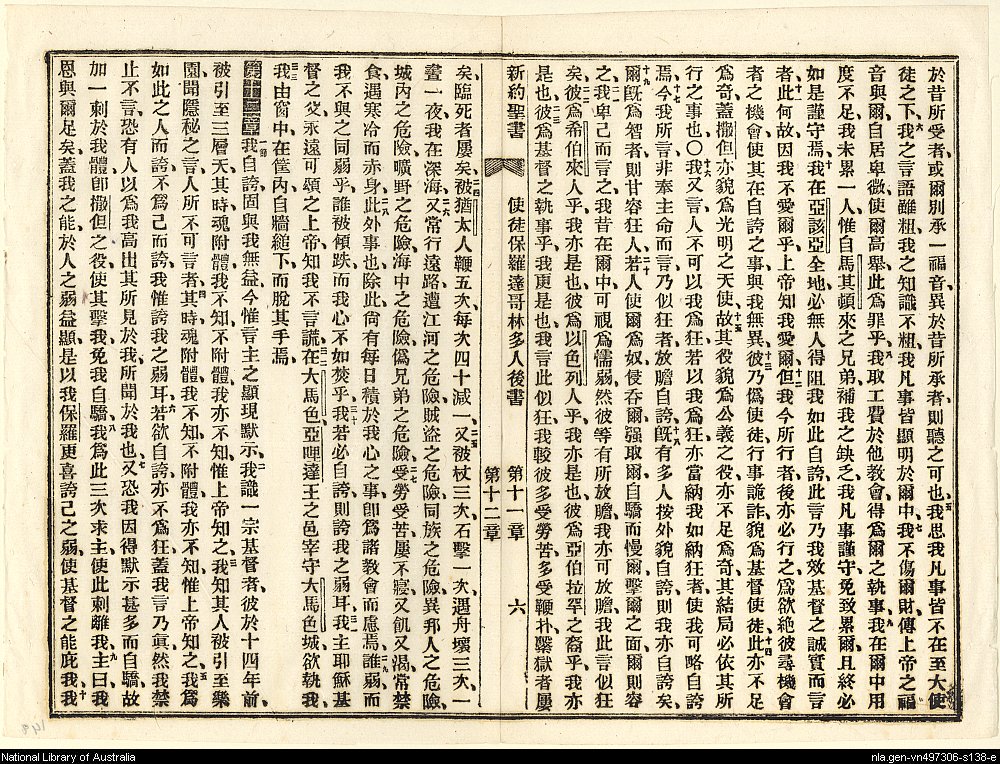 於昔所受者或爾別承一福音異於昔所承者則聽之可也五我思我凡事皆不在至大使
徒之下六我之言語雖粗我之知識不粗我凡事皆顯明於爾中七我不傷爾財傳上帝之福
音與爾自居卑微使爾高舉此爲罪乎八我取工費於他敎會得爲爾之執事九我在爾中用
度不足我未累一人惟自馬其頓來之兄弟補我之缺乏我凡事謹守免致累爾且終必
如是謹守焉十我在亞該亞全地必無人得阻我如此自誇此言乃我效基督之誠實而言
者十一此何故因我不愛爾乎上帝知我愛爾但十二我今所行者後亦必行之爲欲絕彼尋機會
者之機會使其在自誇之事與我無異十三彼乃僞使徒行事詭詐貌爲基督使徒十四此亦不足
爲奇蓋撒但亦貌爲光明之天使十五故其役貌爲公義之役亦不足爲奇其結局必依其所
行之事也〇十六我又言人不可以我爲狂若以我爲狂亦當納我如納狂者使我可略自誇
焉十七今我所言非奉主命而言乃似狂者放膽自誇十八旣有多人按外貌自誇則我亦自誇矣
十九爾旣爲智者則甘容狂人二十若人使爾爲奴侵吞爾强取爾自驕而慢爾擊爾之面爾則容
之二一我卑己而言之我昔在爾中可視爲懦弱然彼等有所放膽我亦可放膽我此言似狂
矣二二彼爲希伯來人乎我亦是也彼爲以色列人乎我亦是也彼爲亞伯拉罕之裔乎我亦
是也二三彼爲基督之執事乎我更是也我言此似狂我較彼多受勞苦多受鞭朴繫獄者屢
新約聖書 使徒保羅達哥林多人後書 第十一章 六
第十二章
矣臨死者屢矣二四被猶太人鞭五次每次四十減一二五又被杖三次石擊一次遇舟壞三次一
晝一夜我在深海二六又常行遠路遭江河之危險賊盜之危險同族之危險異邦人之危險
城內之危險曠野之危險海中之危險僞兄弟之危險二七受勞受苦屢不寢又飢又渴常禁
食遇寒冷而赤身二八此外事也除此尙有每日積於我心之事卽爲諸敎會而慮焉二九誰弱而
我不與之同弱乎誰被傾跌而我心不如焚乎三十我若必自誇則誇我之弱耳三一我主耶穌基
督之父永遠可頌之上帝知我不言謊三二在大馬色亞哩達王之邑宰守大馬色城欲執我
三三我由窗中在筐內自牆縋下而脫其手焉
第十二章一節我自誇固與我無益今惟言主之顯現默示二我識一宗基督者彼於十四年前
被引至三層天其時魂附體我不知不附體我亦不知惟上帝知之三我知其人被引至樂
園聞隱秘之言人所不可言者四其時魂附體我不知不附體我亦不知惟上帝知之五我爲
如此之人而誇不爲己而誇我惟誇我之弱耳六若欲自誇亦不爲狂蓋我言乃眞然我禁
止不言恐有人以爲我高出其所見於我所聞於我也七又恐我因得默示甚多而自驕故
加一刺於我體卽撒但之役使其擊我免我自驕八我爲此三次求主使此刺離我九主曰我
恩與爾足矣蓋我之能於人之弱益顯是以我保羅更喜誇己之弱使基督之能庇我十我
National Library of Australia
nla.gen-vn497306-s138-e